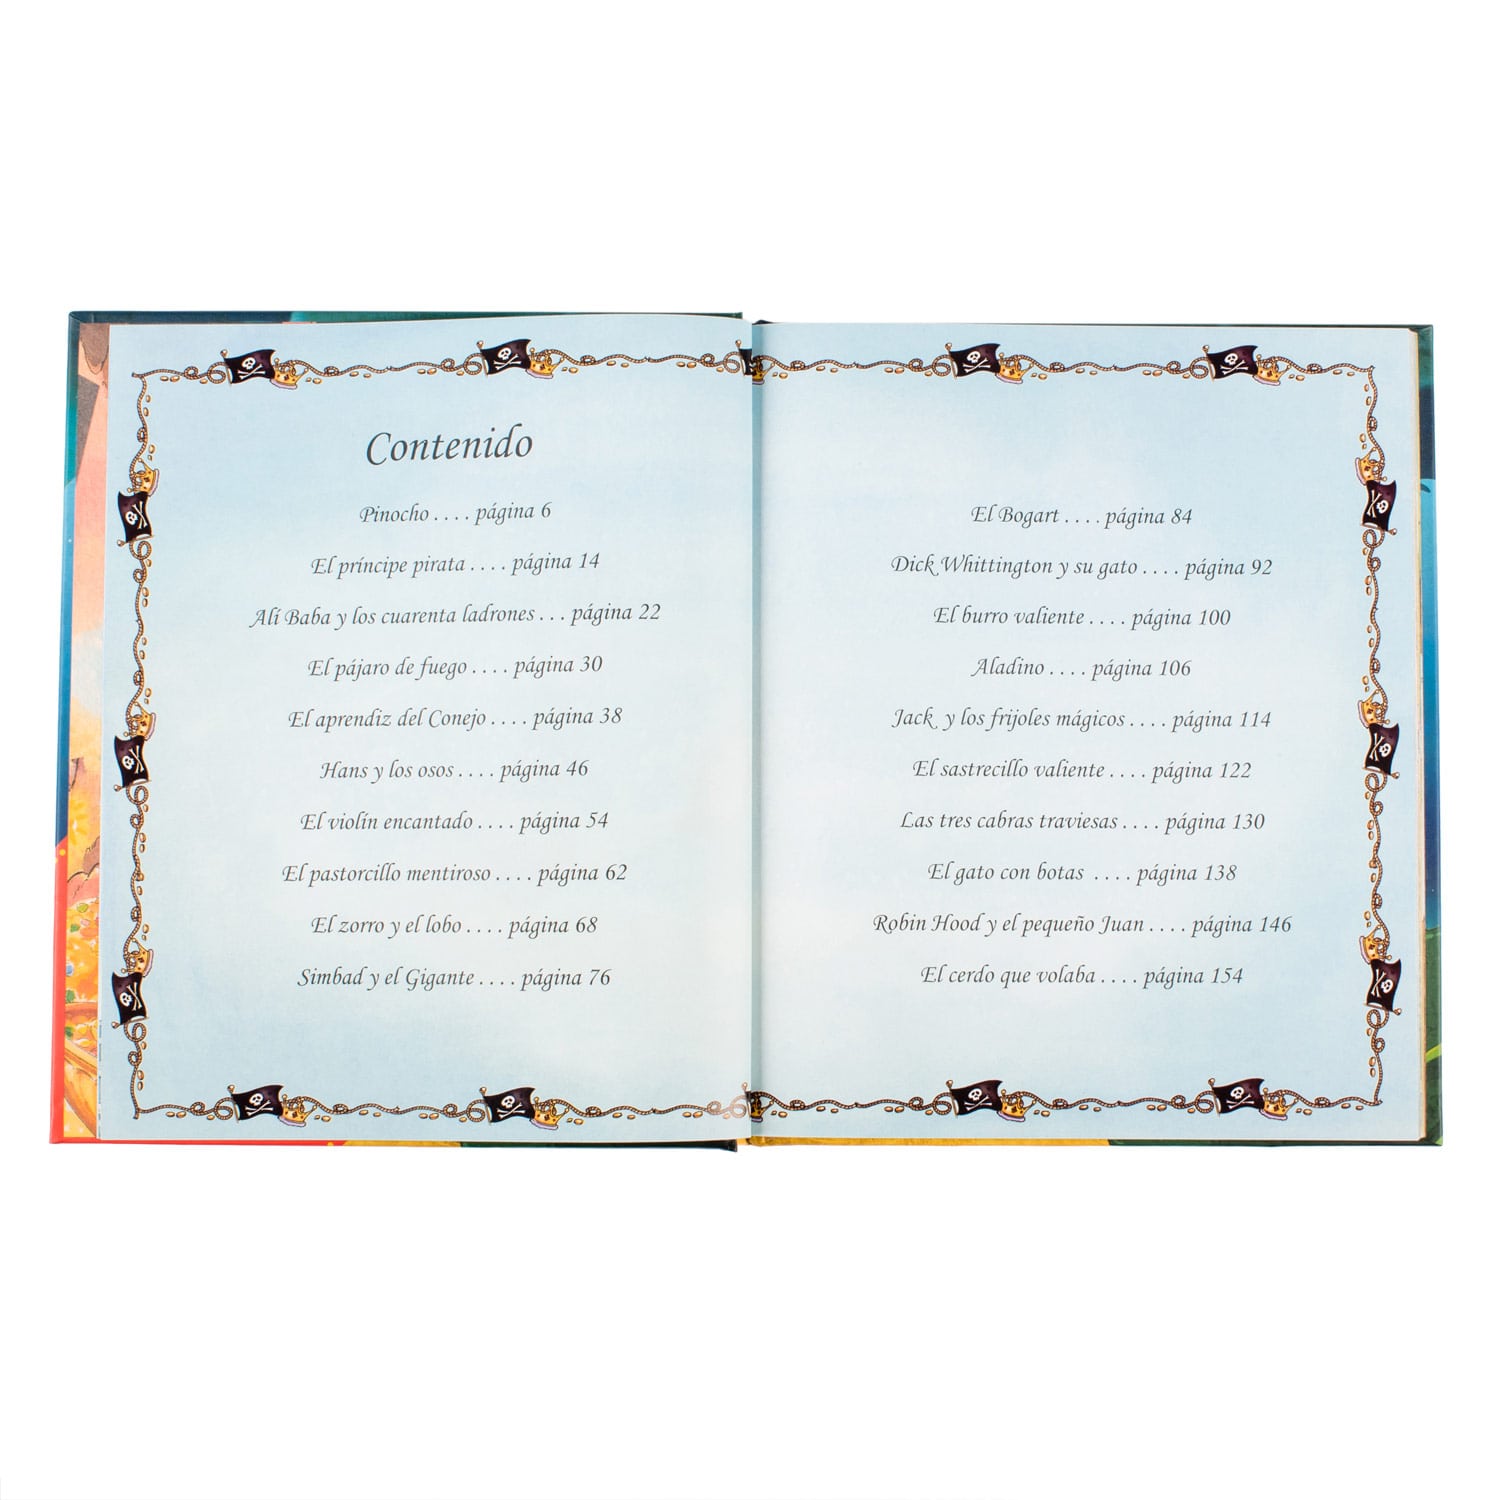 Contenido
Pinocho . . . . página 6
El príncipe pirata . . . . página 14
Alí Baba y los cuarenta ladrones . . . página 22
El pájaro de fuego . . . . página 30
El aprendiz del Conejo . . . . página 38
Hans y los osos . . . . página 46
El violín encantado . . . . página 54
El pastorcillo mentiroso . . . . página 62
El zorro y el lobo . . . . página 68
Simbad y el Gigante . . . . página 76
El Bogart . . . . página 84
Dick Whittington y su gato . . . . página 92
El burro valiente . . . . página 100
Aladino . . . . página 106
Jack y los frijoles mágicos . . . . página 114
El sastrecillo valiente . . . . página 122
Las tres cabras traviesas . . . . página 130
El gato con botas . . . . página 138
Robin Hood y el pequeño Juan . . . . página 146
El cerdo que volaba . . . . página 154